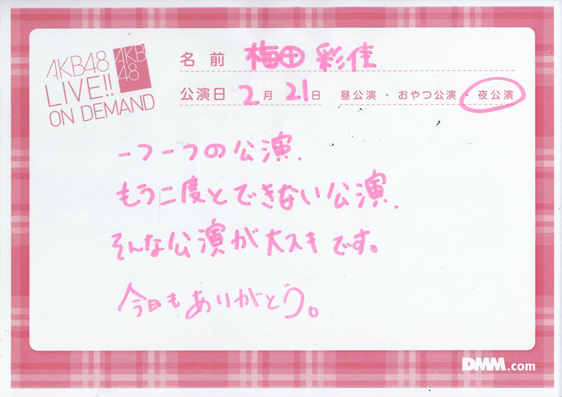 AKB48
LIVE!!
ON DEMAND
AKB
48
名前 梅田 彩佳
公演日 2月21日 昼公演・おやつ公演・夜公演
一つ一つの公演.
もう二度とできない公演.
そんな公演が大スキです。
今日もありがとう。
DMM.com